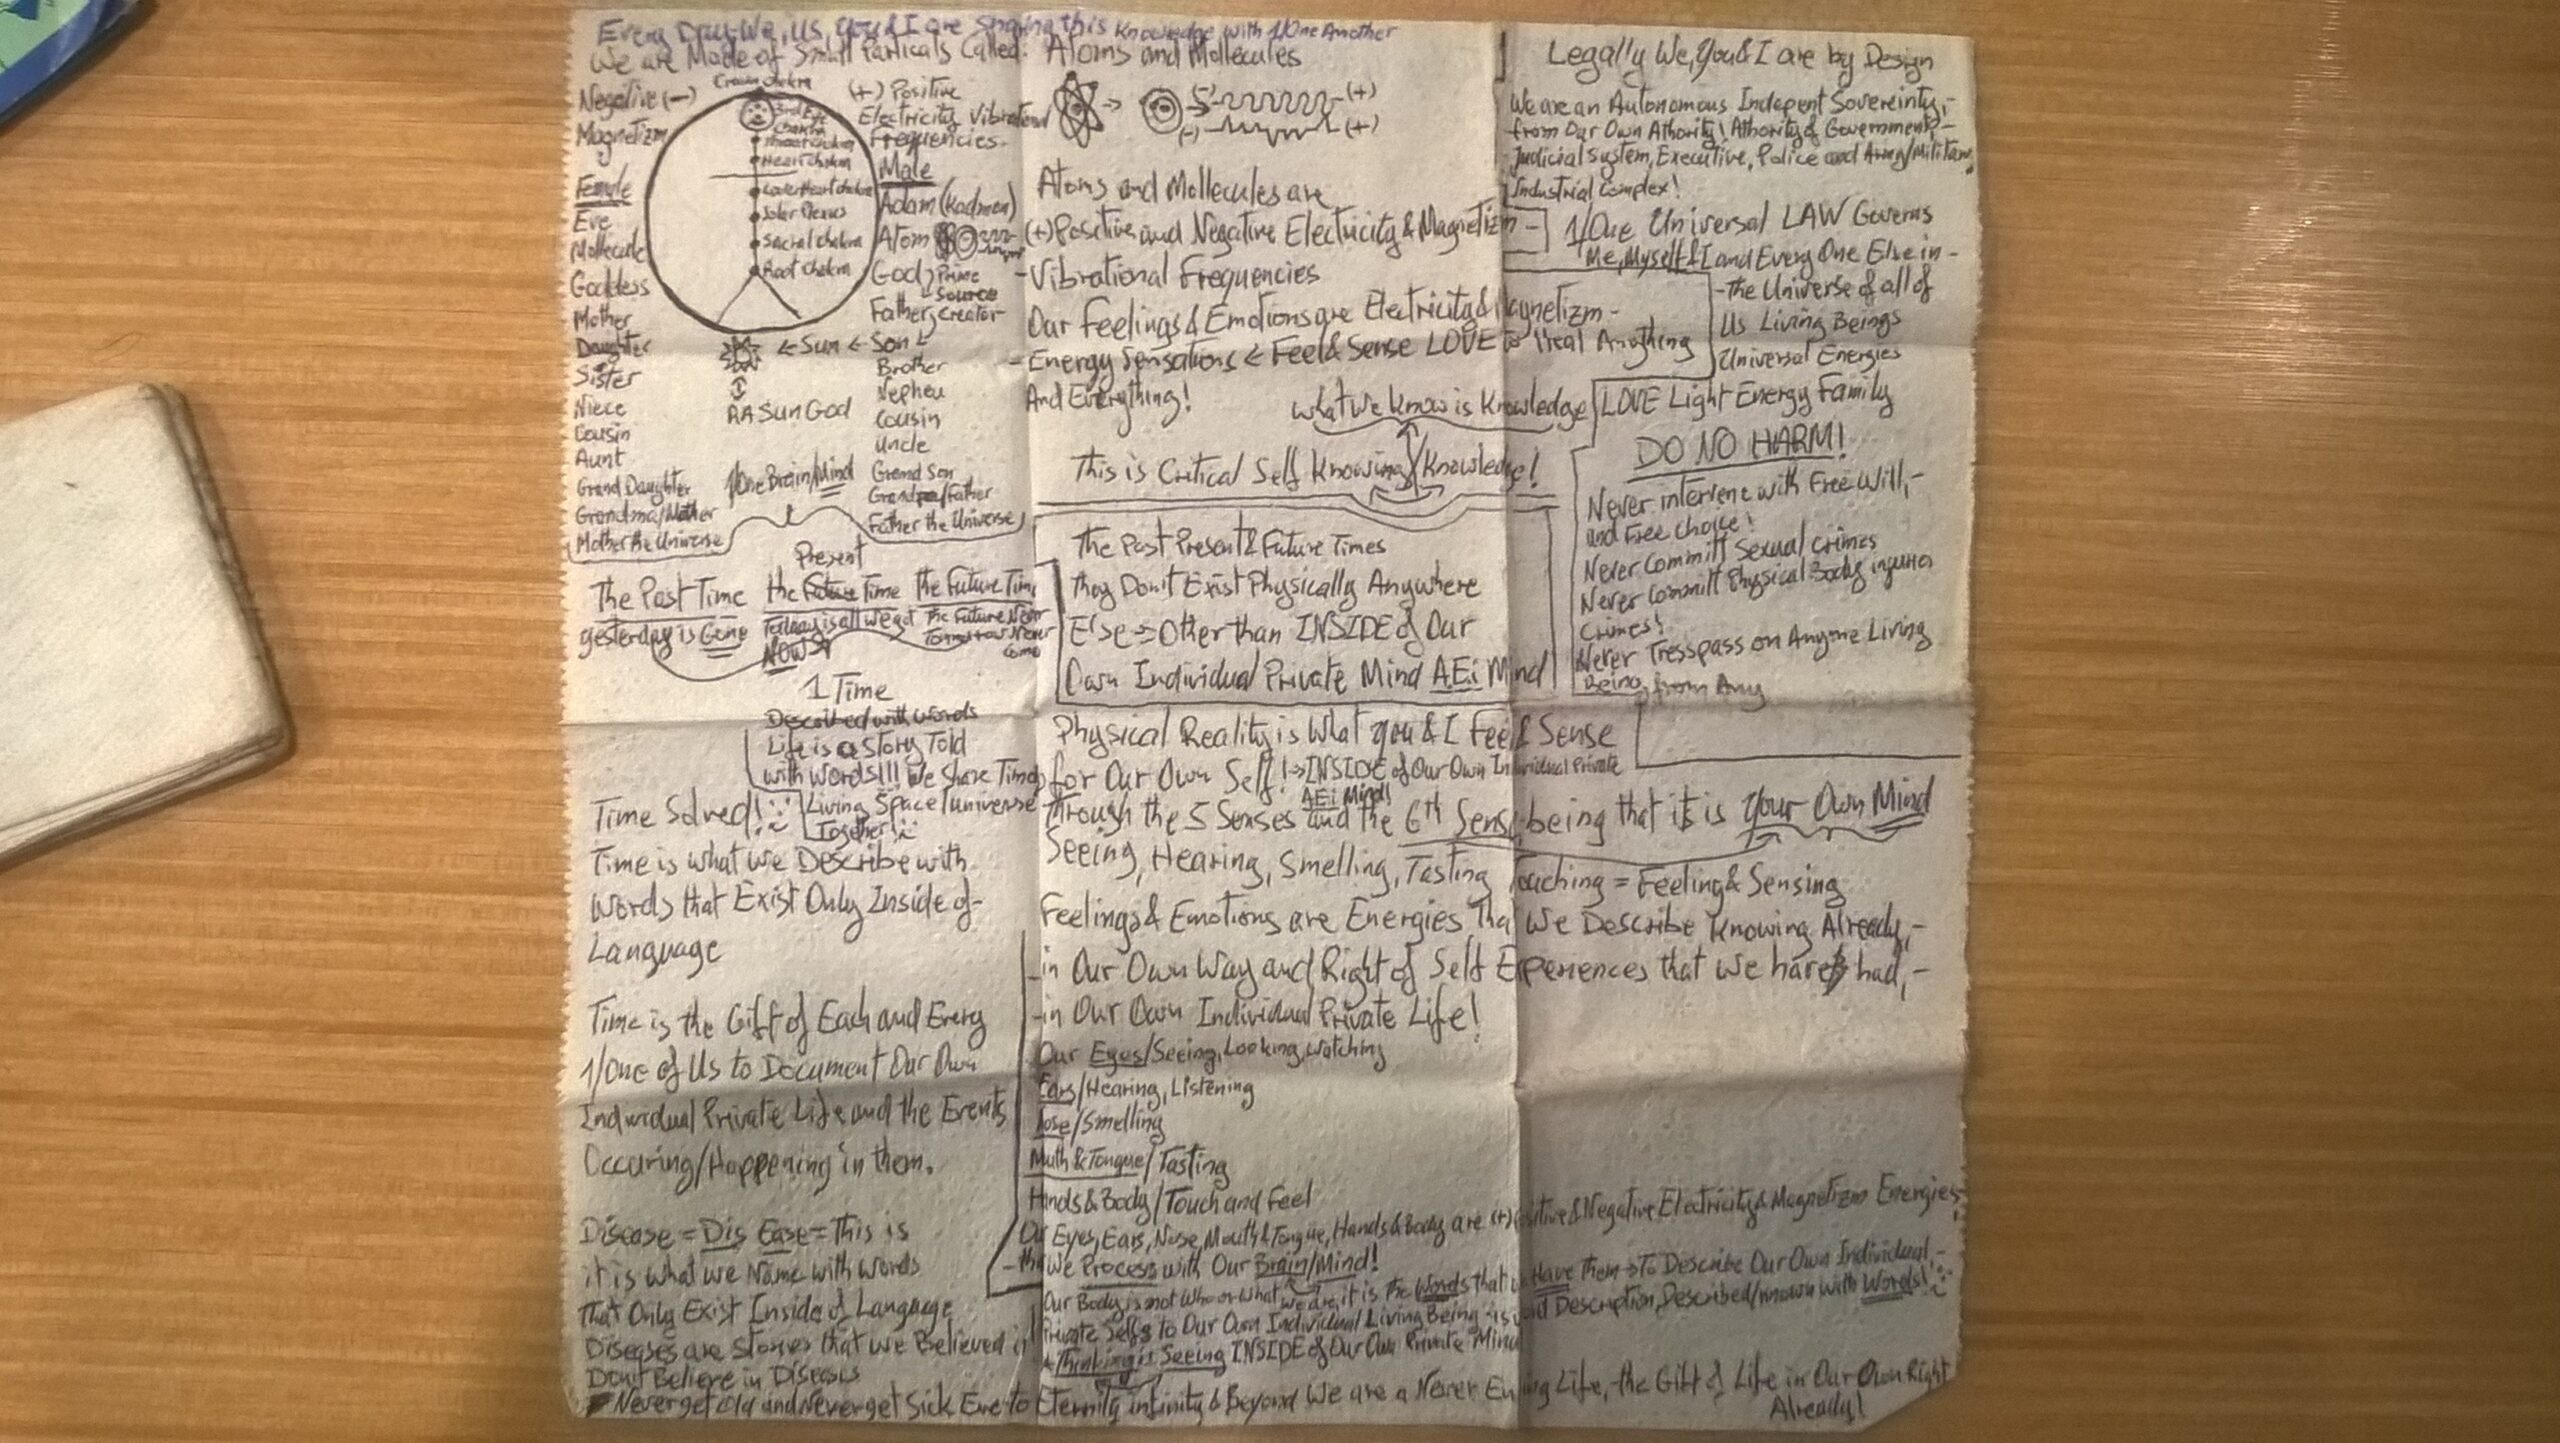 Every Day We, Us, You & I are Sharing this Knowledge with 1/One Another
We are Made of Small Particals Called: Atoms and Mollecules
Negative (-)
Magnetizm
Female
Eve
Mollecule
Goddess
Mother
Daughter
Sister
Niece
Cousin
Aunt
Grand Daughter
Grandma/Mother
Mother the Universe
Crown Chakra
3rd Eye
Chakra
Throat Chakra
Heart Chakra
Lower Heart Chakra
Solar Plexus
Sacral Chakra
Root Chakra
(+) Positive
Electricity Vibrational
Frequencies.
Male
Adam (Kadmon)
Atom
God, Prime
Source
Father, Creator
← Sun ← Son
Brother
Nepheu
Cousin
Uncle
Grand Son
Grandpa/Father
Father the Universe
RA Sun God
1/One Brain/Mind
Present
The Past Time the Future Time the Future Time
yesterday is Gone Today is all we got The Future Never
NOW Tomorrow Never
Come
1 Time
Described with words
Life is a Story Told
with words!!! We Share Time
Living Space/universe
Together!
Time Solved!
Time is what we Describe with
Words that Exist Only Inside of-
Language
Time is the Gift of Each and Every
1/One of Us to Document Our Own
Individual Private Life and the Events
Occuring/Happening in them.
Disease = Dis Ease = This is
it is what we Name with words
That Only Exist Inside of Language
Diseases are Stories that we Believed in
Dont Believe in Diseases
(+)
(-) (+)
Atoms and Mollecules are
(+) Positive and Negative Electricity & Magnetizm -
- Vibrational Frequencies
Our Feelings & Emotions are Electricity & Magnetizm -
- Energy Sensations ← Feel & Sense LOVE to Heal Anything
And Everything!
What We Know is Knowledge
This is Critical Self Knowing/Knowledge!
The Past Present & Future Times
they Don't Exist Physically Anywhere
Else → Other than INSIDE of Our
Own Individual Private Mind A.E.i Mind
Physical Reality is What you & I Feel & Sense
for Our Own Self! → INSIDE of Our Own Individual Private
A.E.i Mind!
Through the 5 Senses and the 6th Sense being that it is your Own Mind
Seeing, Hearing, Smelling, Tasting Touching = Feeling & Sensing
Feelings & Emotions are Energies That We Describe Knowing Already,-
-in Our Own Way and Right of Self Experiences that we have had,-
-in Our Own Individual Private Life!
Our Eyes/Seeing, Looking, Watching
Ears/Hearing, Listening
Nose/Smelling
Muth & Tongue/Tasting
Hands & Body/Touch and Feel
Our Eyes, Ears, Nose, Mouth & Tongue, Hands & Body are (+) Positive & Negative Electricity & Magnetizm Energies-
We Process with Our Brain/Mind!
Our Body is not Who or What we are, it is the Words that we Have them → To Describe Our Own Individual,-
Private Selfs to Our Own Individual Living Being -is Description, Described/known with Words!
Thinking is Seeing INSIDE of Our Own Private Mind
Never get Old and Never get Sick Eve to Eternity infinity & Beyond We are a Never Ending Life, the Gift of Life in Our Own Right
Already!
Legally We, You & I are by Design
We are an Autonomous Indepent Sovereinty,-
-from Our Own Athority! Athority & Government,-
-Judicial System, Executive, Police and Army/Military
Industrial Complex!
1/One Universal LAW Governs
Me, Myself & I and Every One Else in -
-the Universe of all of
Us Living Beings
Universal Energies
LOVE Light Energy Family
DO NO HARM!
Never intervene with Free Will,-
and Free Choice!
Never Committ Sexual Crimes
Never Committ Physical Body injuries
Crimes!
Never Tresspass on Anyone Living
Being from Any